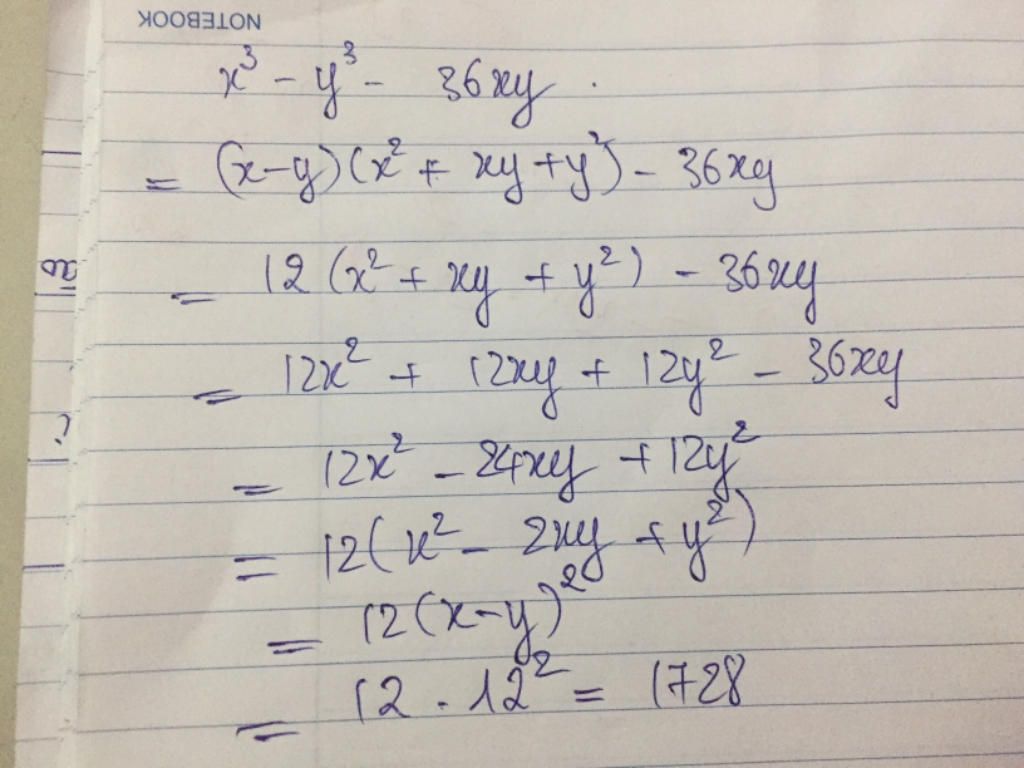 NOTEBOOK
x³ - y³ - 36xy.
= (x-y)(x² + xy + y²) - 36xy
= 12 (x² + xy + y²) - 36xy
= 12x² + 12xy + 12y² - 36xy
= 12x² - 24xy + 12y²
= 12(x² - 2xy + y²)
= 12(x-y)²
= 12 . 12² = 1728